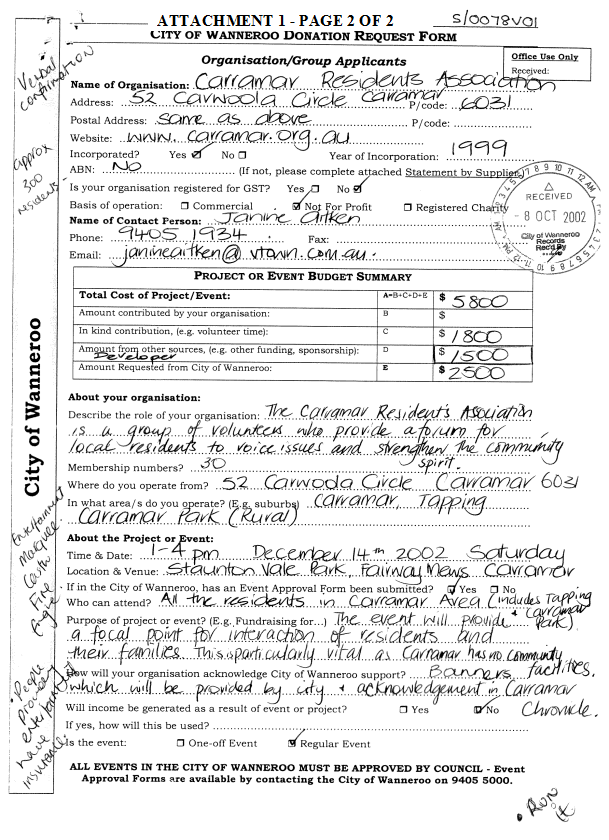 ATTACHMENT 1 - PAGE 2 OF 2
S/0078V01
CITY OF WANNEROO DONATION REQUEST FORM
Organisation/Group Applicants
Office Use Only
Received:
Name of Organisation: Carramar Residents Association
Address: 52 Carwoola Circle Carramar P/code: 6031
Postal Address: same as above P/code:
Website: www.carramar.org.au
Incorporated? Yes ☑ No ☐ Year of Incorporation: 1999
ABN: No (If not, please complete attached Statement by Supplier)
Is your organisation registered for GST? Yes ☐ No ☑
Basis of operation: ☐ Commercial ☑ Not For Profit ☐ Registered Charity
Name of Contact Person: Janine Aitken
Phone: 9405 1934 Fax:
Email: janineaitken@vtown.com.au.
RECEIVED
- 8 OCT 2002
City of Wanneroo
Records
Rec'd By
PROJECT OR EVENT BUDGET SUMMARY
Total Cost of Project/Event: A=B+C+D+E $ 5800
Amount contributed by your organisation: B $
In kind contribution, (e.g. volunteer time): C $ 1800
Amount from other sources, (e.g. other funding, sponsorship): D $ 1500
Developer
Amount Requested from City of Wanneroo: E $ 2500
About your organisation:
Describe the role of your organisation: The Carramar Resident's Association
is a group of volunteers who provide a forum for
local residents to voice issues and strengthen the community
spirit.
Membership numbers? 30
Where do you operate from? 52 Carwoola Circle Carramar 6031
In what area/s do you operate? (E.g. suburbs) Carramar, Tapping
Carramar Park (Rural)
About the Project or Event:
Time & Date: 1-4 pm December 14th 2002 Saturday
Location & Venue: Staunton Vale Park, Fairway Mews Carramar
If in the City of Wanneroo, has an Event Approval Form been submitted? ☑ Yes ☐ No
Who can attend? All the residents in Carramar Area (includes Tapping
& Carramar Park)
Purpose of project or event? (E.g. Fundraising for...) The event will provide
a focal point for interaction of residents and
their families. This is particularly vital as Carramar has no community
facilities.
How will your organisation acknowledge City of Wanneroo support? Banners
which will be provided by city & acknowledgement in Carramar
Chronicle.
Will income be generated as a result of event or project? ☐ Yes ☑ No
If yes, how will this be used?
Is the event: ☐ One-off Event ☑ Regular Event
ALL EVENTS IN THE CITY OF WANNEROO MUST BE APPROVED BY COUNCIL - Event
Approval Forms are available by contacting the City of Wanneroo on 9405 5000.
Verbal
confirmation
Approx
300
residents
City of Wanneroo
Entertainment
Marquee
Castle
Fire
Engine
People
Providing
entertainment
have
insurance